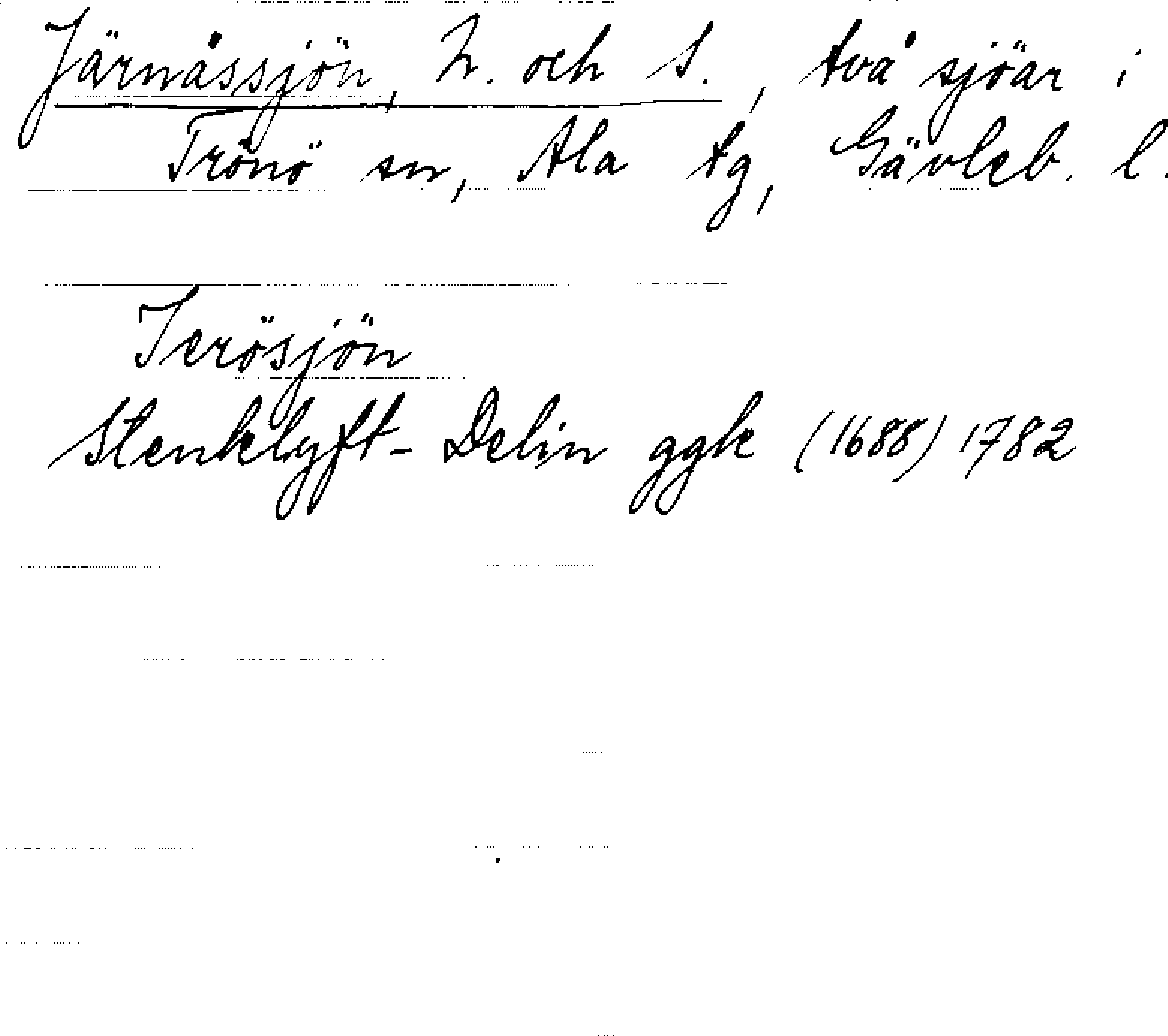 Järnåssjön, N. och S., två sjöar i
Trönö sn, Ala tg, Gävleb. l.
Ierösjön
Stenklyft- Delin ggk (1688) 1782